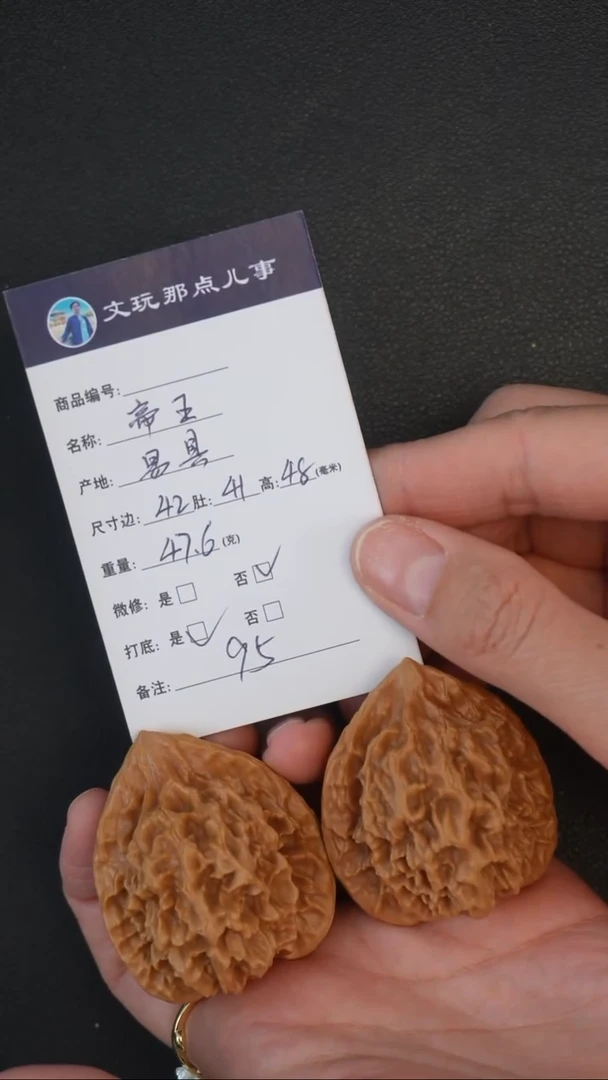 文玩那点儿事
商品编号:
名称: 帝王
产地: 易县
尺寸边: 42 肚: 41 高: 48 (毫米)
重量: 47.6 (克)
微修: 是□ 否☑
打底: 是☑ 否□
备注: 95